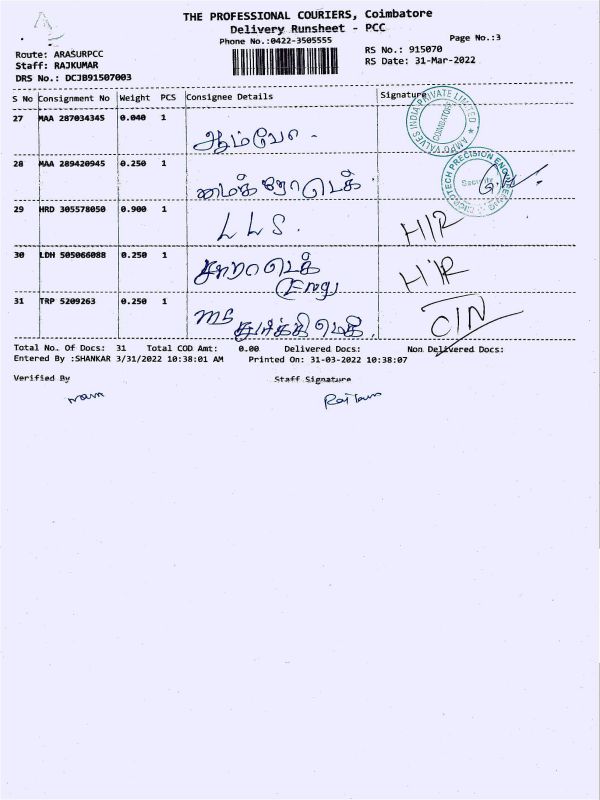 THE PROFESSIONAL COURIERS, Coimbatore
Delivery Runsheet - PCC
Phone No.:0422-3505555
Page No.:3
Route: ARASURPCC
RS No.: 915070
Staff: RAJKUMAR
RS Date: 31-Mar-2022
DRS No.: DCJB91507003
S No Consignment No Weight PCS Consignee Details Signature
27 MAA 287034345 0.040 1
AMPO VALVES INDIA PRIVATE LIMITED
COIMBATORE
28 MAA 289420945 0.250 1 மைக்ரோடெக்
PRECISION ENGINEERING
Security
29 HRD 305578050 0.900 1 L L S. H/R
30 LDH 505066088 0.250 1 H/R
(Eng)
31 TRP 5209263 0.250 1 C/N
Total No. Of Docs: 31 Total COD Amt: 0.00 Delivered Docs: Non Delivered Docs:
Entered By :SHANKAR 3/31/2022 10:38:01 AM Printed On: 31-03-2022 10:38:07
Verified By Staff Signature